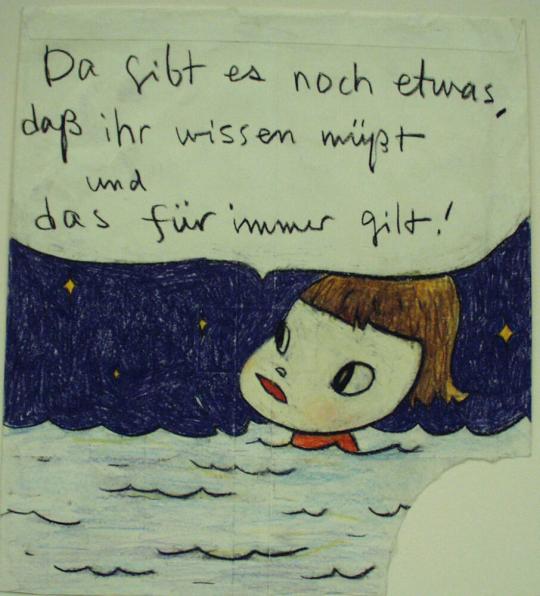 Da gibt es noch etwas,
daß ihr wissen müßt
und
das für immer gilt!